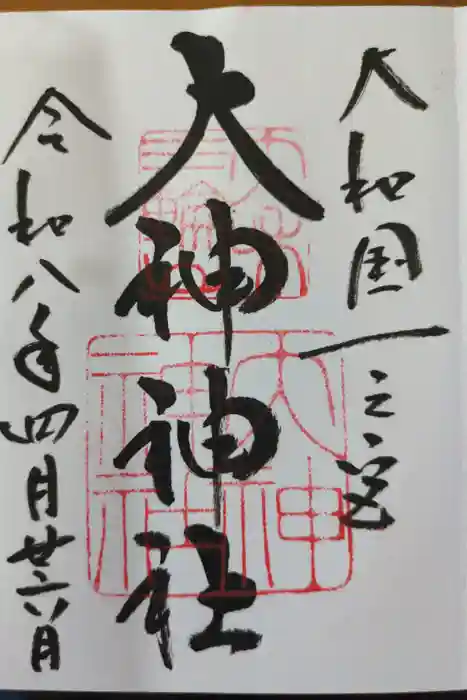 大和国一之宮
大神神社
令和八年四月廿六日